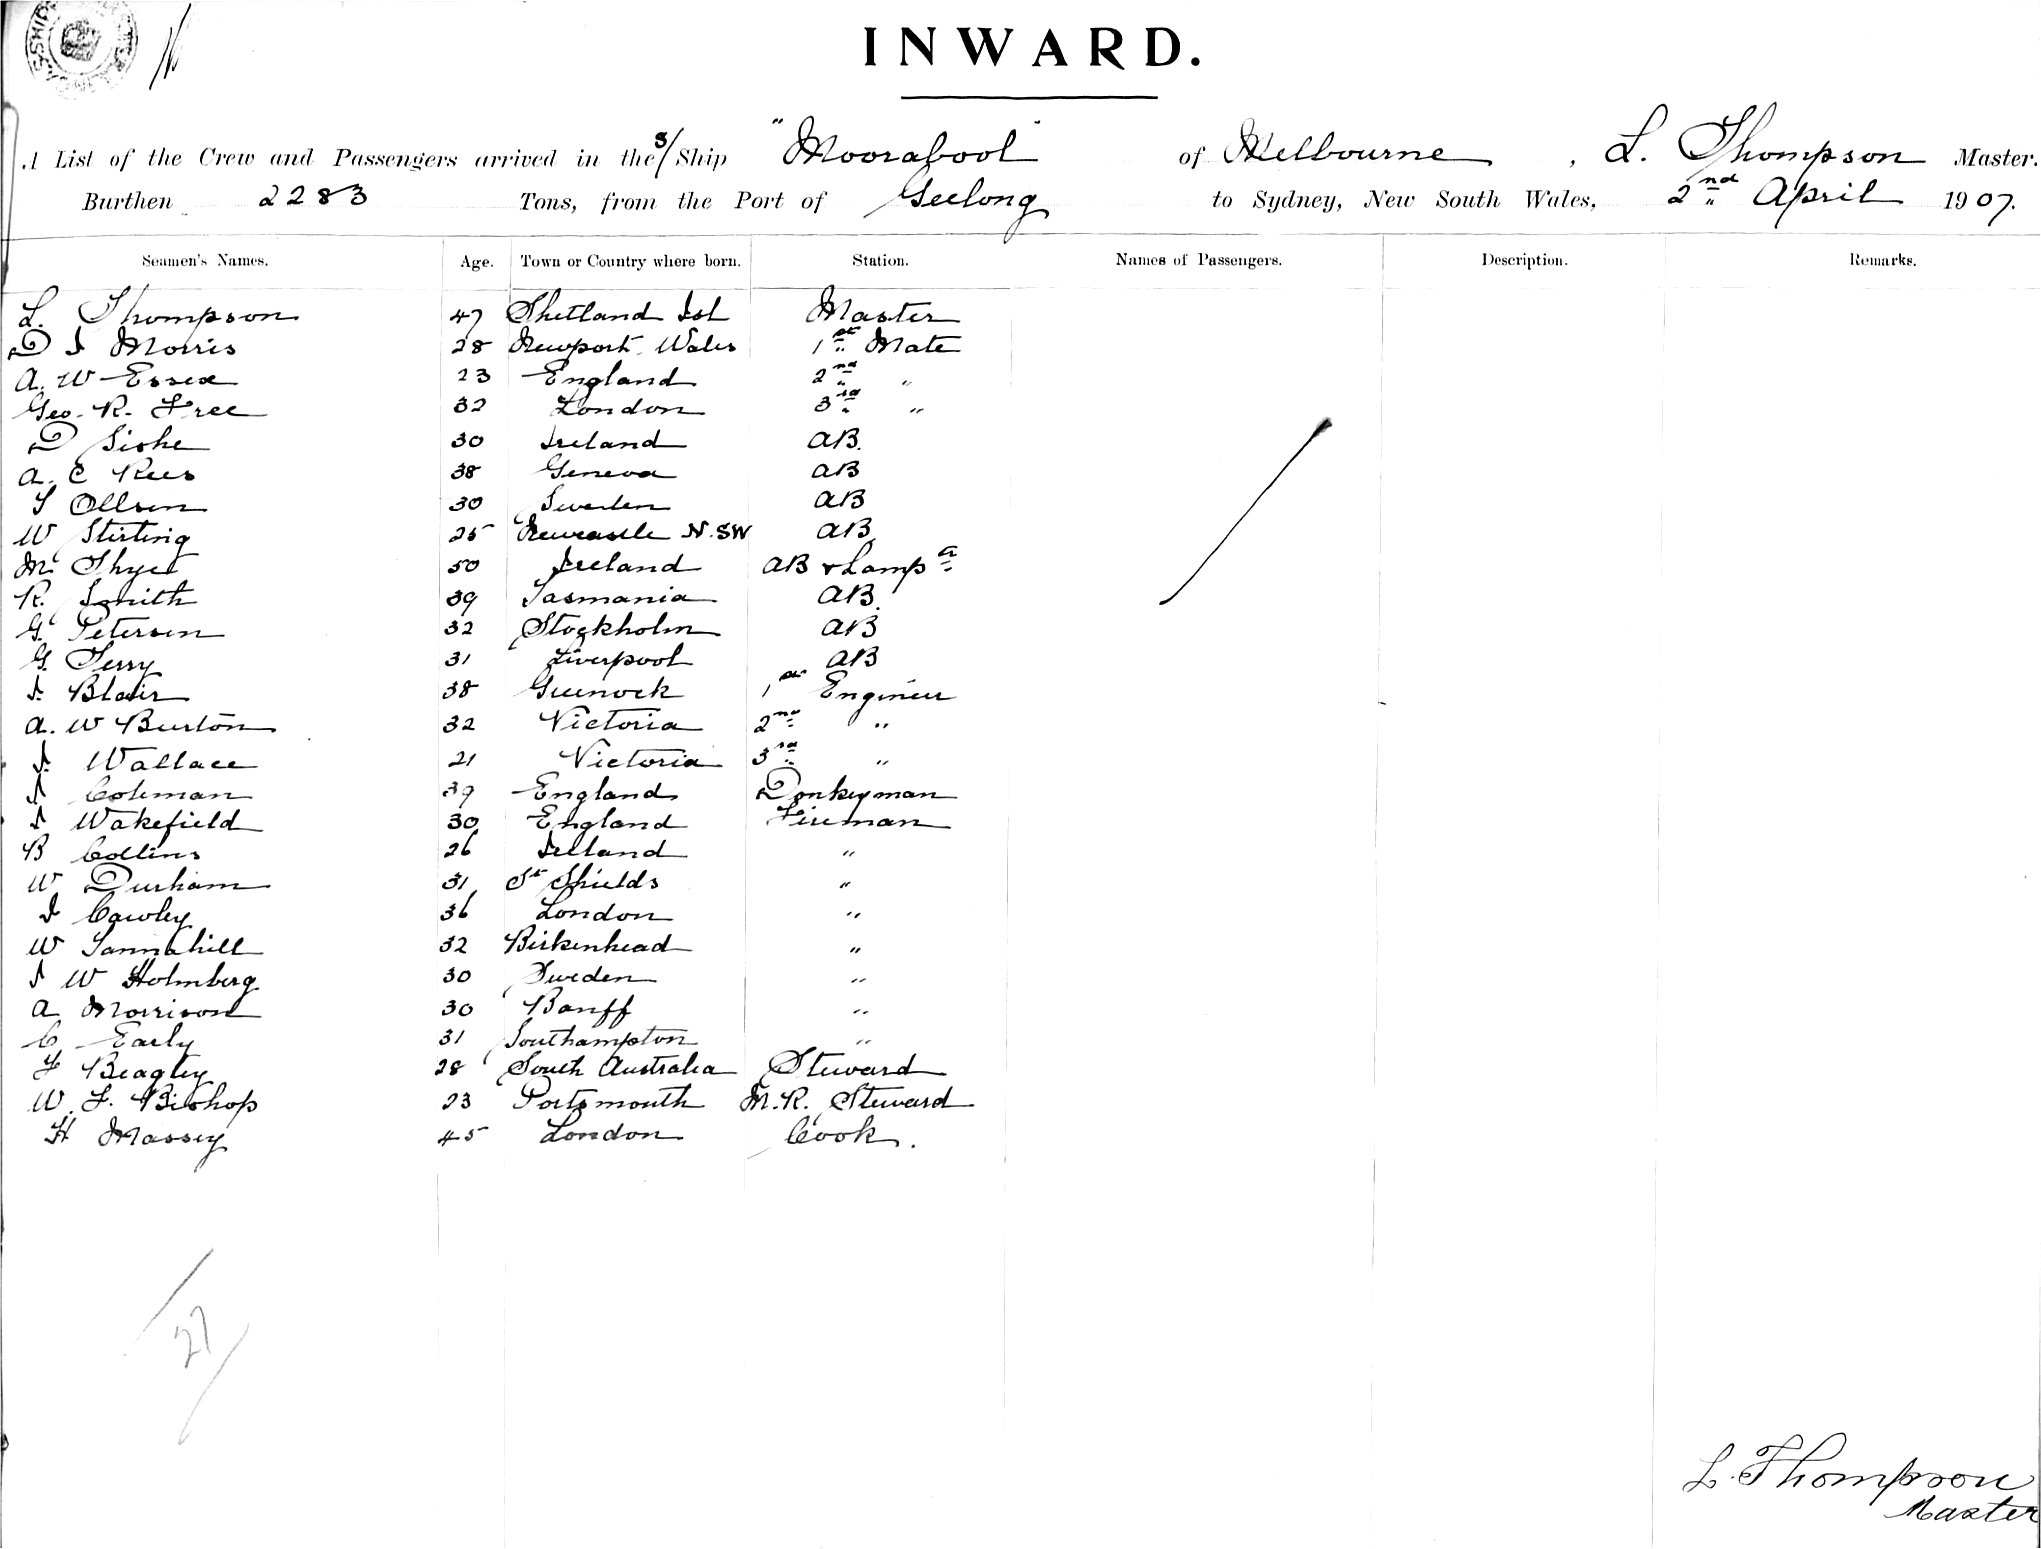 INWARD.
A List of the Crew and Passengers arrived in the S/Ship "Moorabool" of Melbourne, L. Thompson Master.
Burthen 2283 Tons, from the Port of Geelong to Sydney, New South Wales, 2nd April 1907.
Seamen's Names. Age. Town or Country where born. Station. Names of Passengers. Description. Remarks.
L. Thompson 47 Shetland Isl Master
D J Morris 28 Newport Wales 1st Mate
A. W Essex 23 England 2nd "
Geo. R. Free 32 London 3rd "
D 30 Ireland AB.
A. C Rees 38 Geneva AB
T Ollsen 30 Sweden AB
W Stirling 25 Newcastle N.SW AB
M. 50 Ireland AB & Lampr
R. Smith 39 Tasmania AB.
G. Petersen 32 Stockholm AB
G. Terry 31 Liverpool AB
J. Blair 38 Greenock 1st Engineer
A. W Burton 32 Victoria 2nd "
J. Wallace 21 Victoria 3rd "
J Coleman 39 England Donkeyman
J Wakefield 30 England Fireman
B Collins 26 Ireland "
W Durham 31 St Shields "
J Cawley 36 London "
W Tannahill 32 Birkenhead "
J W Holmberg 30 Sweden "
A Morrison 30 Banff "
C Early 31 Southampton "
F Beagley 28 South Australia Steward
W. F. Bishop 23 Portsmouth M.R. Steward
H Massey 45 London Cook.
27
L. Thompson
Master